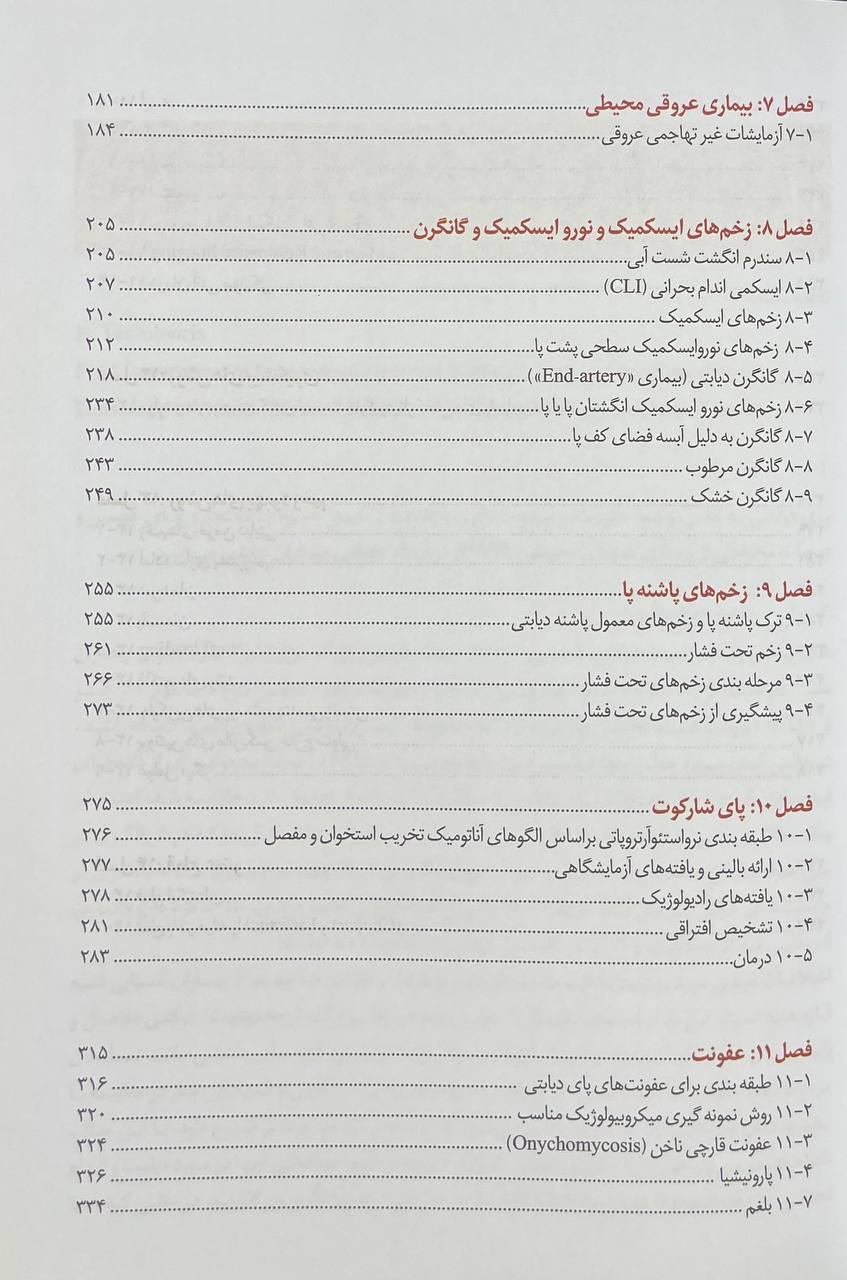 فصل ۷: بیماری عروقی محیطی ۱۸۱
۷-۱ آزمایشات غیر تهاجمی عروقی ۱۸۴
فصل ۸: زخم‌های ایسکمیک و نورو ایسکمیک و گانگرن ۲۰۵
۸-۱ سندرم انگشت شست آبی ۲۰۵
۸-۲ ایسکمی اندام بحرانی (CLI) ۲۰۷
۸-۳ زخم‌های ایسکمیک ۲۱۰
۸-۴ زخم‌های نوروایسکمیک سطحی پشت پا ۲۱۲
۸-۵ گانگرن دیابتی (بیماری «End-artery») ۲۱۸
۸-۶ زخم‌های نورو ایسکمیک انگشتان پا یا پا ۲۳۴
۸-۷ گانگرن به دلیل آبسه فضای کف پا ۲۳۸
۸-۸ گانگرن مرطوب ۲۴۳
۸-۹ گانگرن خشک ۲۴۹
فصل ۹: زخم‌های پاشنه پا ۲۵۵
۹-۱ ترک پاشنه پا و زخم‌های معمول پاشنه دیابتی ۲۵۵
۹-۲ زخم تحت فشار ۲۶۱
۹-۳ مرحله بندی زخم‌های تحت فشار ۲۶۶
۹-۴ پیشگیری از زخم‌های تحت فشار ۲۷۳
فصل ۱۰: پای شارکوت ۲۷۵
۱۰-۱ طبقه بندی نرواستئوآرتروپاتی براساس الگوهای آناتومیک تخریب استخوان و مفصل ۲۷۶
۱۰-۲ ارائه بالینی و یافته‌های آزمایشگاهی ۲۷۷
۱۰-۳ یافته‌های رادیولوژیک ۲۷۸
۱۰-۴ تشخیص افتراقی ۲۸۱
۱۰-۵ درمان ۲۸۳
فصل ۱۱: عفونت ۳۱۵
۱۱-۱ طبقه بندی برای عفونت‌های پای دیابتی ۳۱۶
۱۱-۲ روش نمونه گیری میکروبیولوژیک مناسب ۳۲۰
۱۱-۳ عفونت قارچی ناخن (Onychomycosis) ۳۲۴
۱۱-۴ پارونیشیا ۳۲۶
۱۱-۷ بلغم ۳۳۴